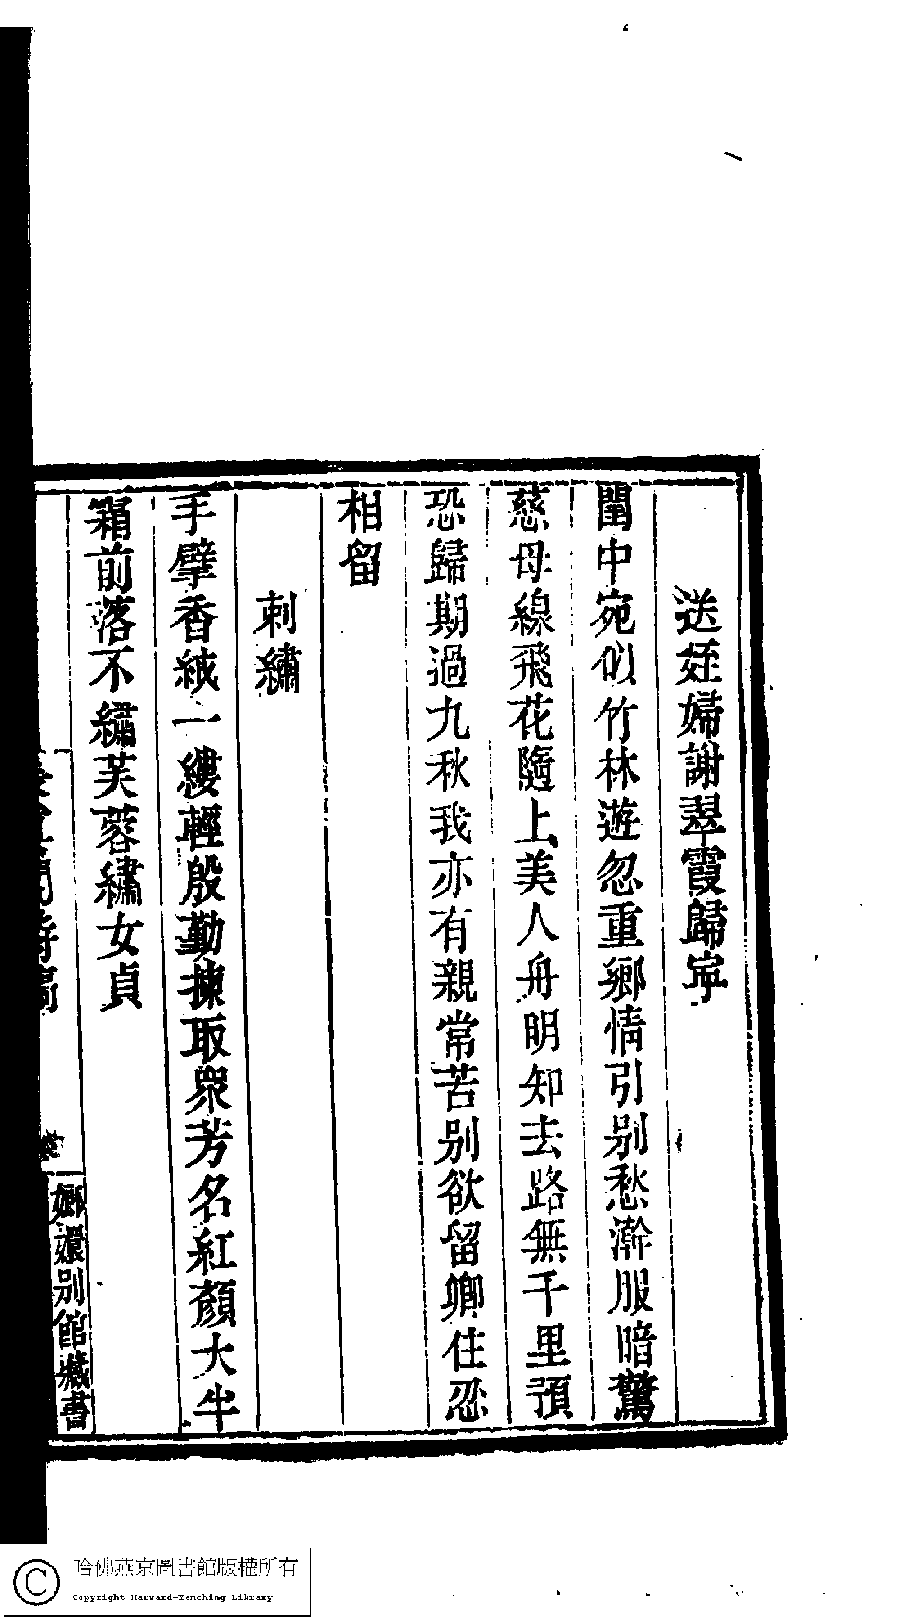 送姪婦謝翠霞歸寧
閨中宛似竹林遊忽重鄉情引別愁澣服暗驚
慈母線飛花隨上美人舟明知去路無千里預
恐歸期過九秋我亦有親常苦別欲留卿住忍
相留
刺繡
手擘香絨一縷輕殷勤揀取眾芳名紅顏大半
霜前落不繡芙蓉繡女貞
詩稿
嫏嬛別館藏書
哈佛燕京圖書館版權所有
Copyright Harvard-Yenching Library